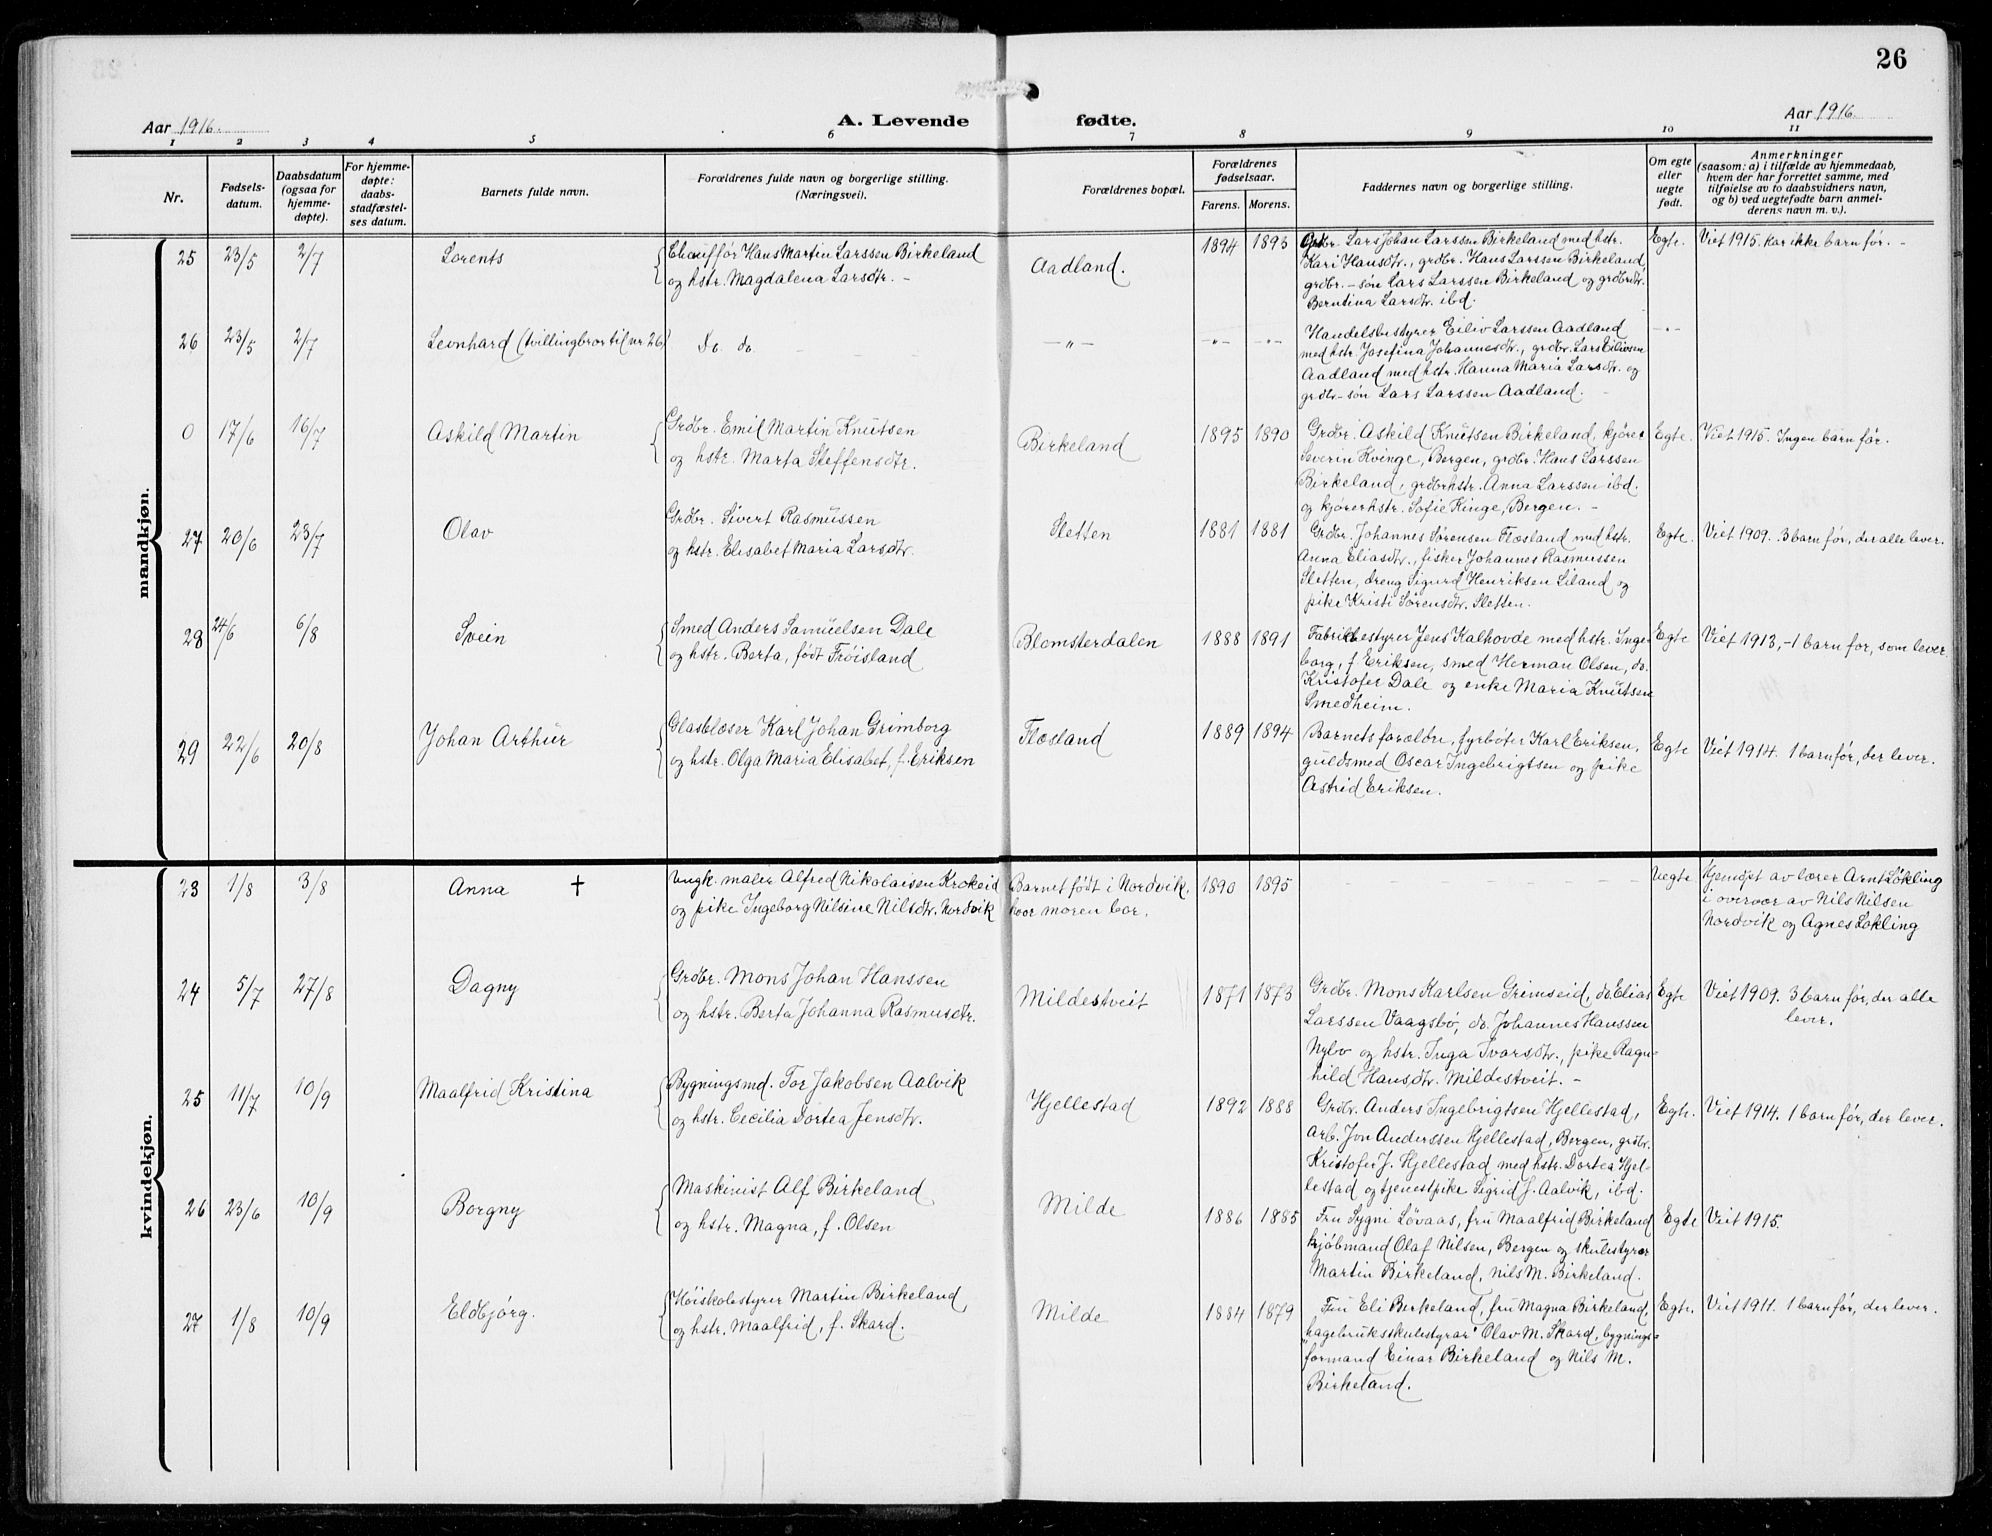 26
Aar 1916.
A. Levende fødte.
Aar 1916.
1 2 3 4 5 6 7 8 9 10 11
Nr.
Fødsels-
datum.
Daabsdatum
(ogsaa for
hjemme-
døpte).
For hjemme-
døpte:
daabs-
stadfæstel-
ses datum.
Barnets fulde navn.
Forældrenes fulde navn og borgerlige stilling.
(Næringsvei).
Forældrenes bopæl.
Forældrenes
fødselsaar.
Farens. Morens.
Faddernes navn og borgerlige stilling.
Om egte
eller
uegte
født.
Anmerkninger
(saasom: a) i tilfælde av hjemmedaab,
hvem der har forrettet samme, med
tilføielse av to daabsvidners navn,
og b) ved uegtefødte barn anmel-
derens navn m. v.).
mandkjøn.
25 23/5 2/7 Lorents
Chauffør Hans Martin Larssen Birkeland
og hstr. Magdalena Larsdtr. -
Aadland.
1894 1893
Grdbr. Lars Johan Larssen Birkeland med hstr.
Kari Hansdtr., grdbr. Hans Larssen Birkeland,
grdbr.-søn Lars Larssen Birkeland og grdbrdtr.
Berntina Larsdtr. ibd.
Egte. Viet 1915. Har ikke barn før. -
26 23/5 2/7 Leonhard (tvillingbror til nr 26)
Do. do.
-"- -"- -"-
Handelsbestyrer Eiliv Larssen Aadland
med hstr. Josefina Johannesdtr., grdbr. Lars Eilivsen
Aadland med hstr. Hanna Maria Larsdtr. og
grdbr.-søn Lars Larssen Aadland.
-"-
0 17/6 16/7 Askild Martin
Grdbr. Emil Martin Knutsen
og hstr. Marta Steffensdtr.
Birkeland
1895 1890
Grdbr. Askild Knutsen Birkeland, kjører
Severin Kvinge, Bergen, grdbr. Hans Larssen
Birkeland, grdbrhstr. Anna Larssen ibd.
og kjørerhstr. Sofie Kinge, Bergen. -
Egte. Viet 1915. Ingen barn før.
27 20/6 23/7 Olav
Grdbr. Sivert Rasmussen
og hstr. Elisabet Maria Larsdtr.
Sletten
1881 1881
Grdbr. Johannes Sørensen Flæsland med hstr.
Anna Eliasdtr., fisker Johannes Rasmussen
Sletten, dreng Sigurd Henriksen Liland og
pike Kristi Sørensdtr. Sletten.
Egte. Viet 1909. 3 barn før, der alle lever.
28 24/6 6/8 Svein
Smed Anders Samuelsen Dale
og hstr. Berta, født Frøisland
Blomsterdalen
1888 1891
Fabrikbestyrer Jens Kalhovde med hstr. Inge-
borg, f. Eriksen, smed Herman Olsen, do.
Kristofer Dale og enke Maria Knutsen
Smedheim.
Egte Viet 1913, -1 barn før, som lever.
29 22/6 20/8 Johan Arthur
Glasblæser Karl Johan Grimborg
og hstr. Olga Maria Elisabet, f. Eriksen
Flæsland
1889 1894
Barnets forældre, fyrbøter Karl Eriksen,
guldsmed Oscar Ingebrigtsen og pike
Astrid Eriksen.
Egte Viet 1914. 1 barn før, der lever.
kvindekjøn.
23 1/8 3/8 Anna †
Ungk. maler Alfred Nikolaisen Krokeid
og pike Ingeborg Nilsine Nilsdtr. Nordvik
Barnet født i Nordvik,
hvor moren bor.
1890 1895
Uegte
Hjemdøpt av lærer Arnt Løkling
i overvær av Nils Nilsen
Nordvik og Agnes Løkling
24 5/7 27/8 Dagny
Grdbr. Mons Johan Hanssen
og hstr. Berta Johanna Rasmusdtr.
Mildestveit
1871 1873
Grdbr. Mons Karlsen Grimseid, do. Elias
Larssen Vaagsbø, do. Johannes Hanssen
Nybø og hstr. Inga Ivarsdtr., pike Ragn-
hild Hansdtr. Mildestveit. -
Egte Viet 1909. 3 barn før, der alle
lever.
25 11/7 10/9 Maalfrid Kristina
Bygningsmd. Tor Jakobsen Aalvik
og hstr. Cecilia Dortea Jensdtr.
Hjellestad
1892 1888
Grdbr. Anders Ingebrigtsen Hjellestad,
arb. Jon Anderssen Hjellestad, Bergen, grdbr.
Kristofer J. Hjellestad med hstr. Dortea Hjel-
lestad og tjenestpike Sigrid J. Aalvik, ibd.
Egte. Viet 1914. 1 barn før, der lever.
26 23/6 10/9 Borgny
Maskinist Alf Birkeland
og hstr. Magna, f. Olsen
Milde
1886 1885
Fru Sygni Løvaas, fru Maalfrid Birkeland
kjøbmand Olaf Nilsen, Bergen og skulestyrer
Martin Birkeland, Nils M. Birkeland.
Egte Viet 1915.
27 1/8 10/9 Eldbjørg.
Høiskolestyrer Martin Birkeland
og hstr. Maalfrid, f. Skard.
Milde
1884 1879
Fru Eli Birkeland, fru Magna Birkeland,
hagebruksskulestyrar Olav M. Skard, bygnings-
formand Einar Birkeland og Nils M.
Birkeland.
Egte. Viet 1911. 1 barn før, der lever.